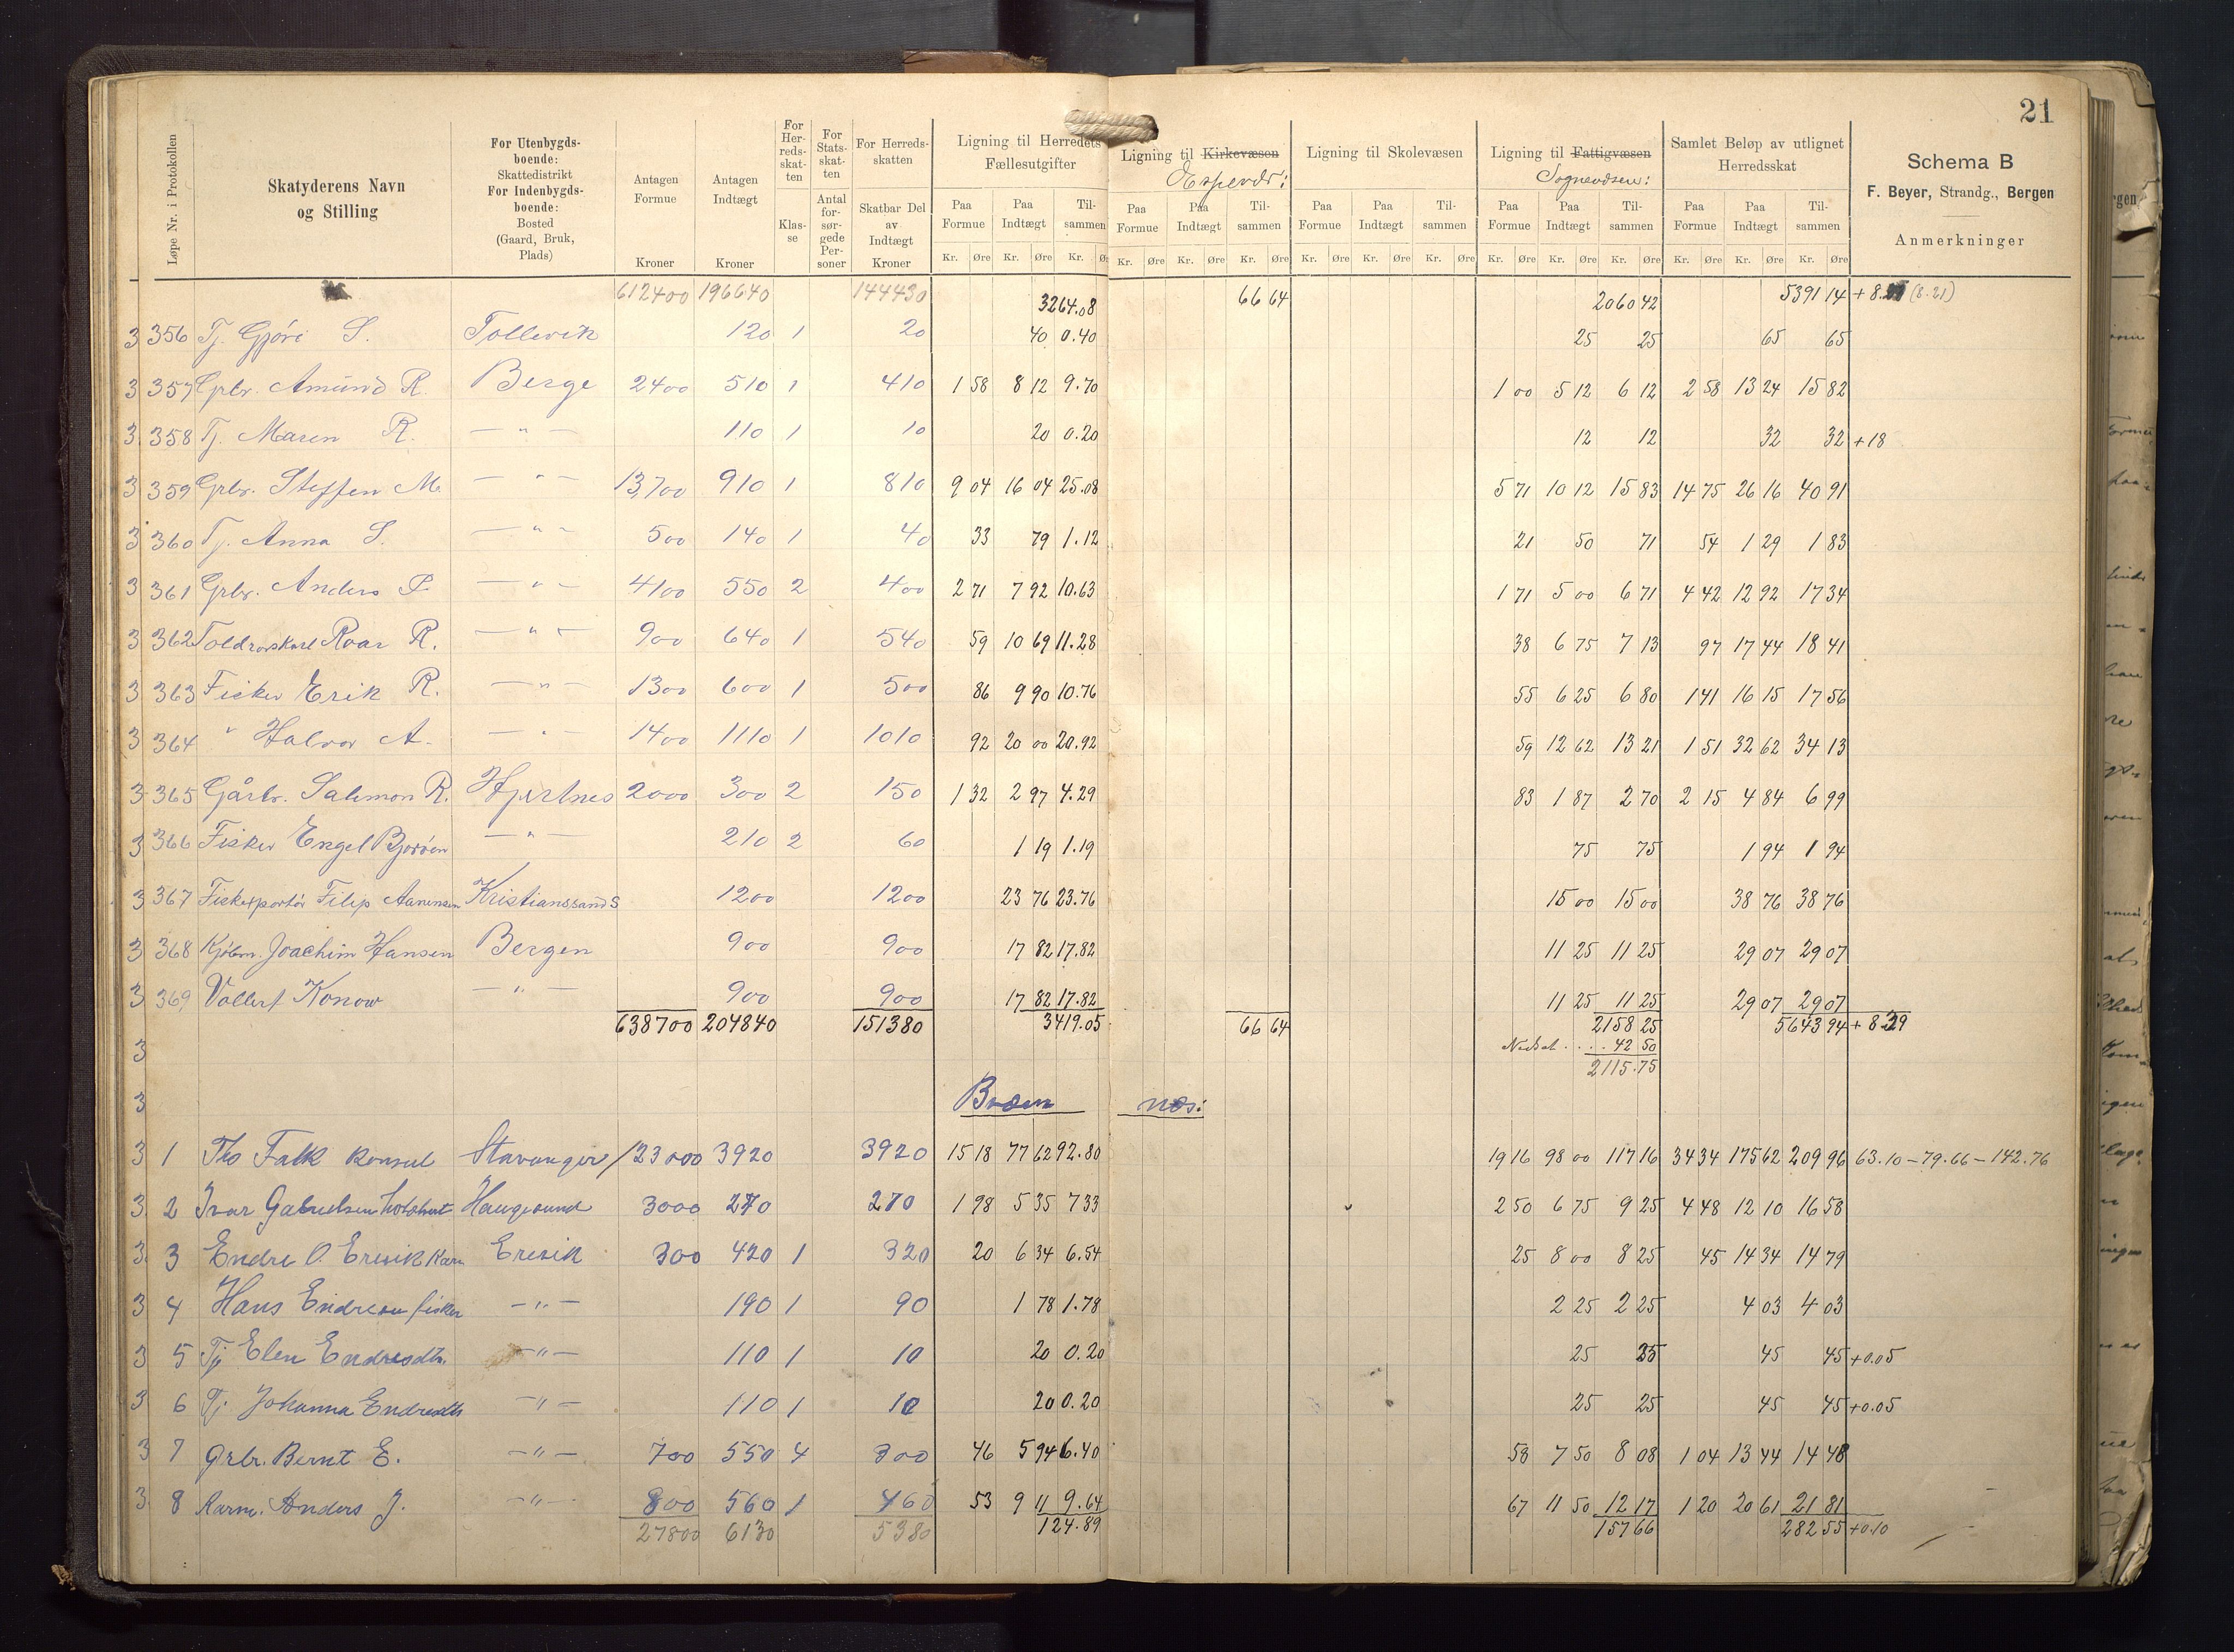 21
Løpe Nr. i Protokollen
Skatyderens Navn og Stilling
For Utenbygds-boende: Skattedistrikt For Indenbygds-boende: Bosted (Gaard, Bruk, Plads)
Antagen Formue Kroner
Antagen Indtægt Kroner
For Her-reds-skat-ten Klas-se
For Stats-skat-ten Antal for-sør-gede Per-soner
For Herreds-skatten Skatbar Del av Indtægt Kroner
Ligning til Herredets Fællesutgifter
Ligning til Kirkevæsen
Ligning til Skolevæsen
Ligning til Fattigvæsen
Sognevæsen:
Samlet Beløp av utlignet Herredsskat
Paa Formue Paa Indtægt Til-sammen Paa Formue Paa Indtægt Til-sammen Paa Formue Paa Indtægt Til-sammen Paa Formue Paa Indtægt Til-sammen Paa Formue Paa Indtægt Til-sammen
Kr. Øre Kr. Øre Kr. Øre Kr. Øre Kr. Øre Kr. Øre Kr. Øre Kr. Øre Kr. Øre Kr. Øre Kr. Øre Kr. Øre Kr. Øre Kr. Øre Kr. Øre
Schema B
F. Beyer, Strandg., Bergen
Anmerkninger
612400 196640 144430 3264.08 66 64 2060 42 5391 14 (8.21)
3 356 Tj. Gjøri S. Tollevik 120 1 20 40 0.40 25 25 65 65
3 357 Grbr. Amund R. Berge 2400 510 1 410 1 58 8 12 9.70 1 00 5 12 6 12 2 58 13 24 15 82
3 358 Tj. Maren R. — " — 110 1 10 20 0.20 12 12 32 32 +18
3 359 Grbr. Steffen M. — " — 13,700 910 1 810 9 04 16 04 25.08 5 71 10 12 15 83 14 75 26 16 40 91
3 360 Tj. Anna S. — " — 500 140 1 40 33 79 1.12 21 50 71 54 1 29 1 83
3 361 Grbr. Anders P. — " — 4100 550 2 400 2 71 7 92 10.63 1 71 5 00 6 71 4 42 12 92 17 34
3 362 Toldrorskarl Roar R. — " — 900 640 1 540 59 10 69 11.28 38 6 75 7 13 97 17 44 18 41
3 363 Fisker Erik R. — " — 1300 600 1 500 86 9 90 10.76 55 6 25 6 80 1 41 16 15 17 56
3 364 " Halvor A. — " — 1400 1110 1 1010 92 20 00 20.92 59 12 62 13 21 1 51 32 62 34 13
3 365 Gårbr. Salemon R. Hjertnes 2000 300 2 150 1 32 2 97 4.29 83 1 87 2 70 2 15 4 84 6 99
3 366 Fisker Engel Bjørøen — " — 210 2 60 1 19 1.19 75 75 1 94 1 94
3 367 Fiskexportør Filip Aanensen Kristianssand S 1200 1200 23 76 23.76 15 00 15 00 38 76 38 76
3 368 Kjøbm. Joachim Hansen Bergen 900 900 17 82 17.82 11 25 11 25 29 07 29 07
3 369 Vollert Konow — " — 900 900 17 82 17.82 11 25 11 25 29 07 29 07
638700 204840 151380 3419.05 66 64 2158 25 5643 94 + 8.39
3 42 50
2115.75
3 Bræm nes:
3 1 Ths Falk Konsul Stavanger 23000 3920 3920 15 18 77 62 92.80 19 16 98 00 117 16 34 34 175 62 209 96 63.10 – 79.66 – 142.76
3 2 Ivar Gabrielsen Haugesund 3000 270 270 1 98 5 35 7 33 2 50 6 75 9 25 4 48 12 10 16 58
3 3 Endre O. Eresvik Karm Eresvik 300 420 1 320 20 6 34 6.54 25 8 00 8 25 45 14 34 14 79
3 4 Hans Endresen fisker — " — 190 1 90 1 78 1.78 2 25 2 25 4 03 4 03
3 5 Tj Elen Endresdtr. — " — 110 1 10 20 0.20 25 25 45 45 +0.05
3 6 Tj Johanna Endresdtr — " — 110 1 10 20 0.20 25 25 45 45 +0.05
3 7 Grbr. Bernt E. — " — 700 550 4 300 46 5 94 6.40 58 7 50 8 08 1 04 13 44 14 48
3 8 Karm. Anders J. — " — 800 560 1 460 53 9 11 9.64 67 11 50 12 17 1 20 20 61 21 81
27800 6130 5380 124.89 157 66 282 55 +0.10